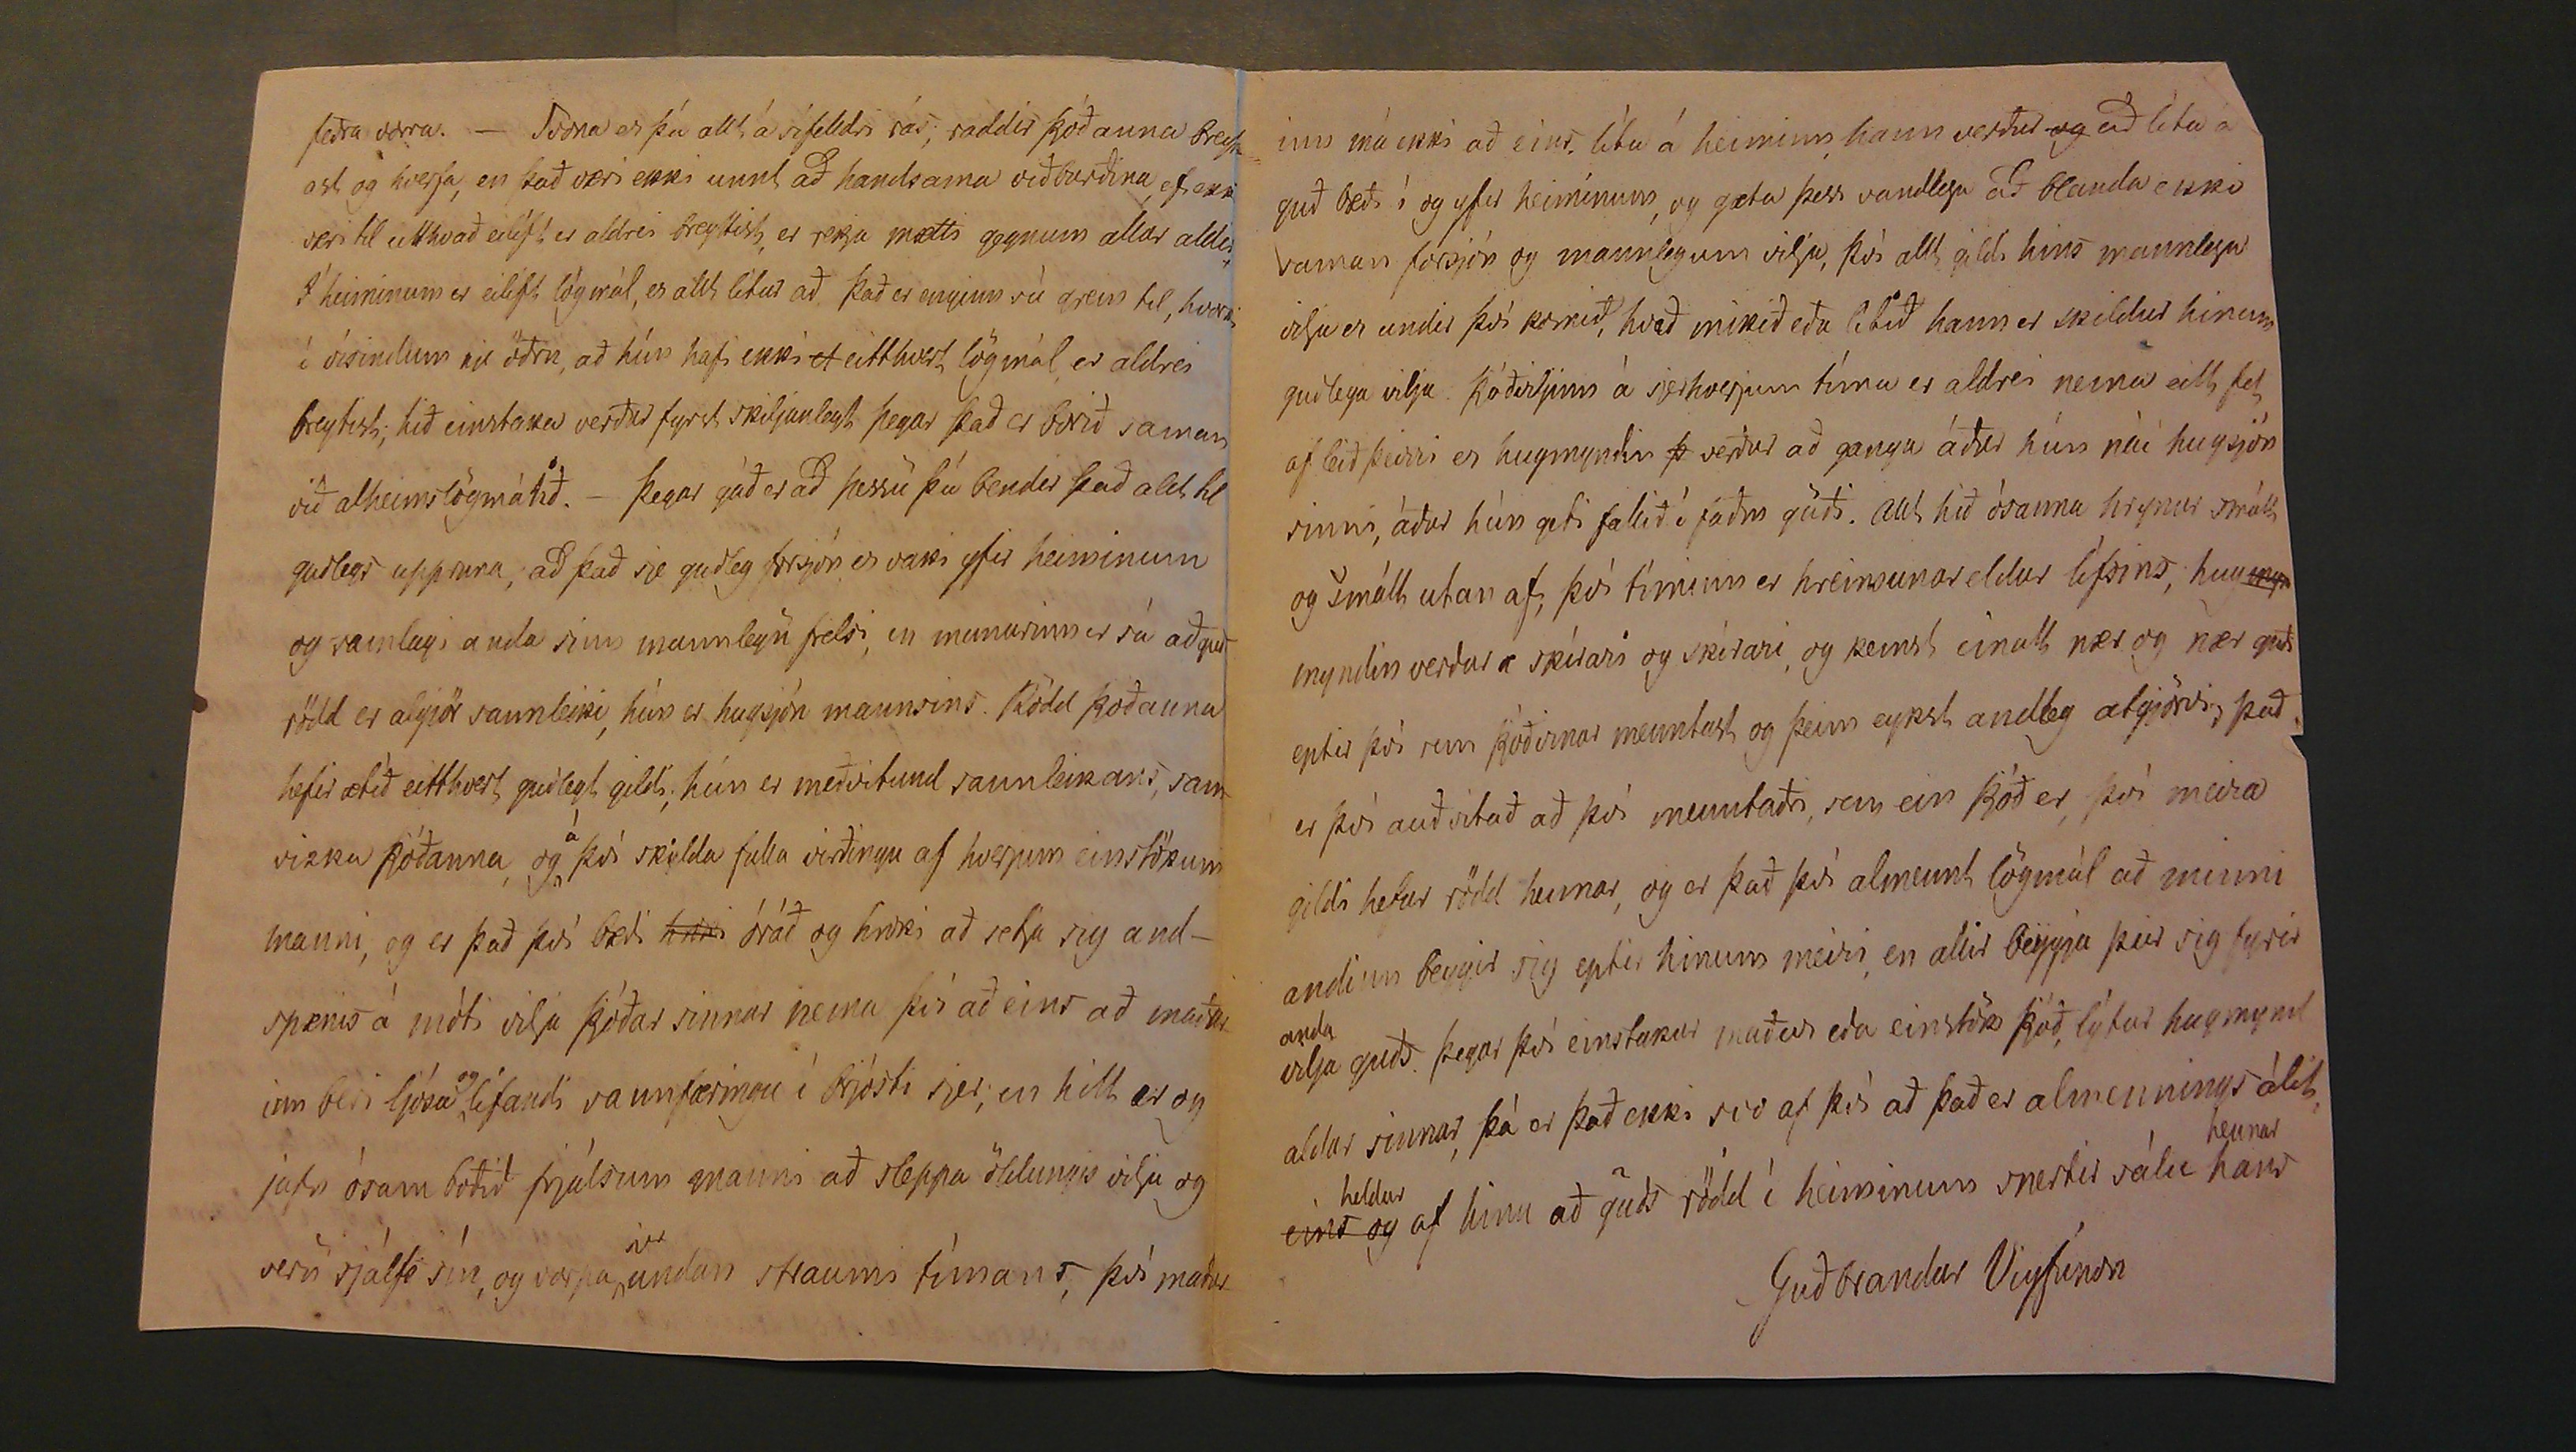 feðra vorra. — Svona er þá allt á sífeldri rás; raddir þjóðanna breyt-
ast og hverfa, en það væri ekki unnt að handsama viðburðina, ef ekki
væri til eitthvað eilíft er aldrei breyttist, er rekja mætti gegnum allar aldir.
Í heiminum er eilíft lögmál, er allt lítur að. Það er enginn sú grein til, hvorki
í vísindum nje öðru, að hún hafi ekki eitthvert lögmál, er aldrei
breytist; hið einstaka verður fyrst skiljanlegt þegar það er borið saman
við alheimslögmálið. — Þegar gáð er að þessu þá bendir það allt til
guðlegs uppruna, að það sje guðleg forsjón er vaki yfir heiminum
og samlagi anda sinn mannlegu frelsi, en munurinn er sá að guðs
rödd er algjör sannleiki, hún er hugsjón mannsins. Rödd þjóðanna
hefir ætíð eitthvert guðlegt gildi, hún er meðvitund sannleikans, sam-
vizka þjóðanna, og á því skylda fulla virðingu af hverjum einstökum
manni, og er það því bæði óráð og hroki að setja sig and-
spænis á móti vilja þjóðar sinnar nema því að eins að maður-
inn beri ljósa og lifandi sannfæringu í brjósti sjer; en hitt er og
jafn ósamboðið frjálsum manni að sleppa öldungis vilja og
veru sjálfs sín, og varpa sjer undan straumi tímans, því maður-
inn má ekki að eins líta á heiminn, hann verður og að líta á
guð bæði í og yfir heiminum, og gæta þess vandlega að blanda ekki
saman forsjón og mannlegum vilja, því allt gildi hins mannlega
vilja er undir því komið, hvað mikið eða lítið hann er skildur hinum
guðlega vilja. Þjóðviljinn á sjerhverjum tíma er aldrei nema eitt fet
af leið þeirri er hugmyndin þ verður að ganga áður hún nái hugsjón
sinni, áður hún geti fallið í faðm guði. Allt hið ósanna hrynur smátt
og smátt utan af, því tíminn er hreinsunar eldur lífsins, hugmyn
myndin verður skírari og skírari, og kemst einatt nær og nær guði
eptir því sem þjóðirnar menntast og þeim eykst andleg atgjörvi, það
er því auðvitað að því menntaðri, sem ein þjóð er, því meira
gildi hefur rödd hennar, og er það því almennt lögmál að minni
andinn beygir sig eptir hinum meiri, en allir beygja þeir sig fyrir
anda
vilja guðs. Þegar því einstakur maður eða einstök þjóð, lýtur hugmynd
aldar sinnar, þá er það ekki svo af því að það er almennings álit,
heldur hennar
eins og af hinu að guðs rödd í heiminum snertir sálu hans
Guðbrandur Vigfússon